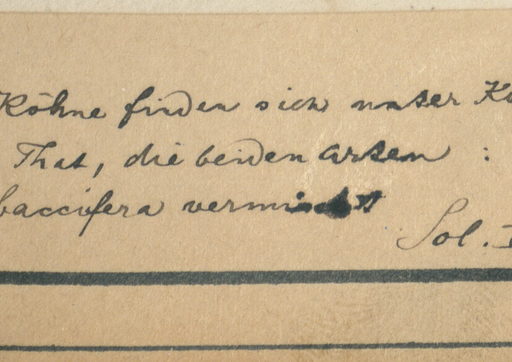 Köhne finden sich unter Ko
That, die beiden Arten :
baccifera vermischt
Sol. I